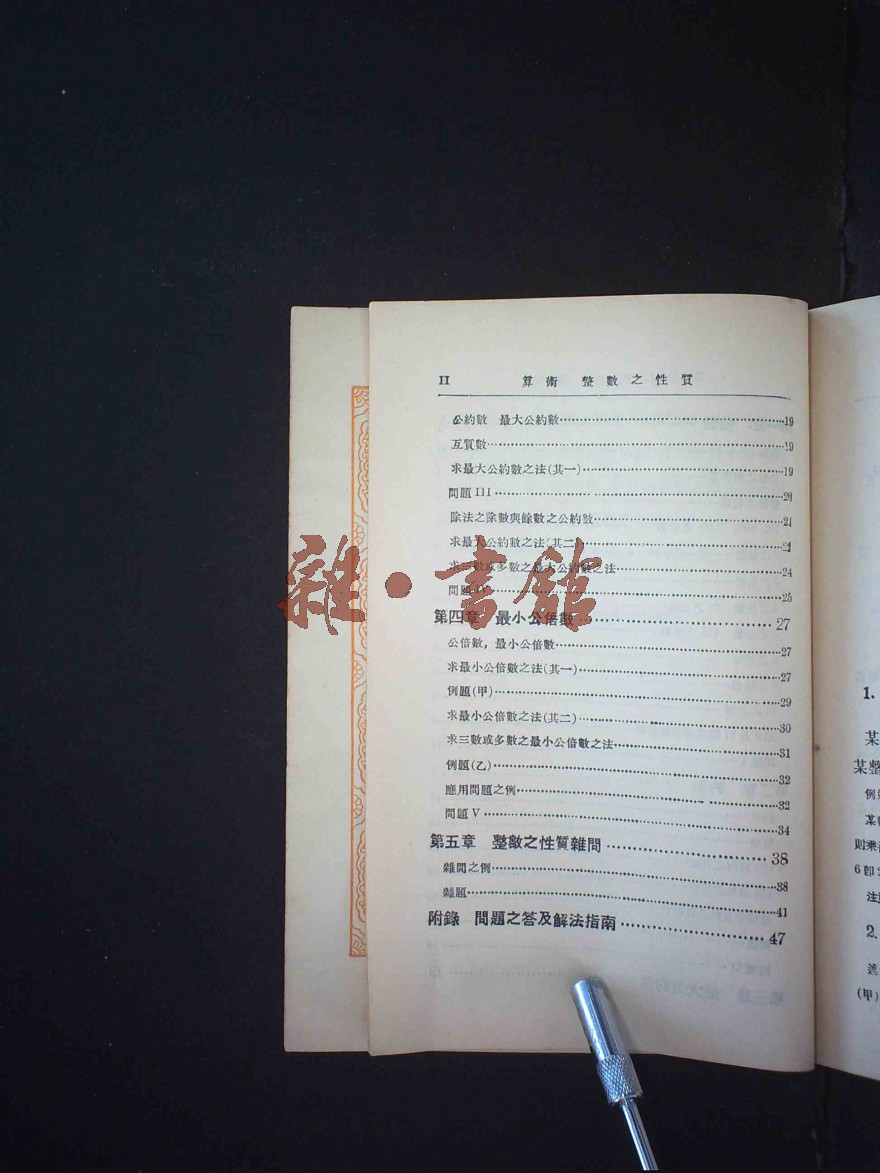 II 算術 整數之性質
公約數 最大公約數 19
互質數 19
求最大公約數之法(其一) 19
問題III 20
除法之除數與餘數之公約數 21
求最大公約數之法(其二) 22
求三數或多數之最大公約數之法 24
問題IV 25
第四章 最小公倍數 27
公倍數,最小公倍數 27
求最小公倍數之法(其一) 27
例題(甲) 29
求最小公倍數之法(其二) 30
求三數或多數之最小公倍數之法 31
例題(乙) 32
應用問題之例 32
問題V 34
第五章 整數之性質雜問 38
雜問之例 38
雜題 41
附錄 問題之答及解法指南 47
雜·書館
1.
某
某整
例
某
則乘
6卽
注
2.
(甲)